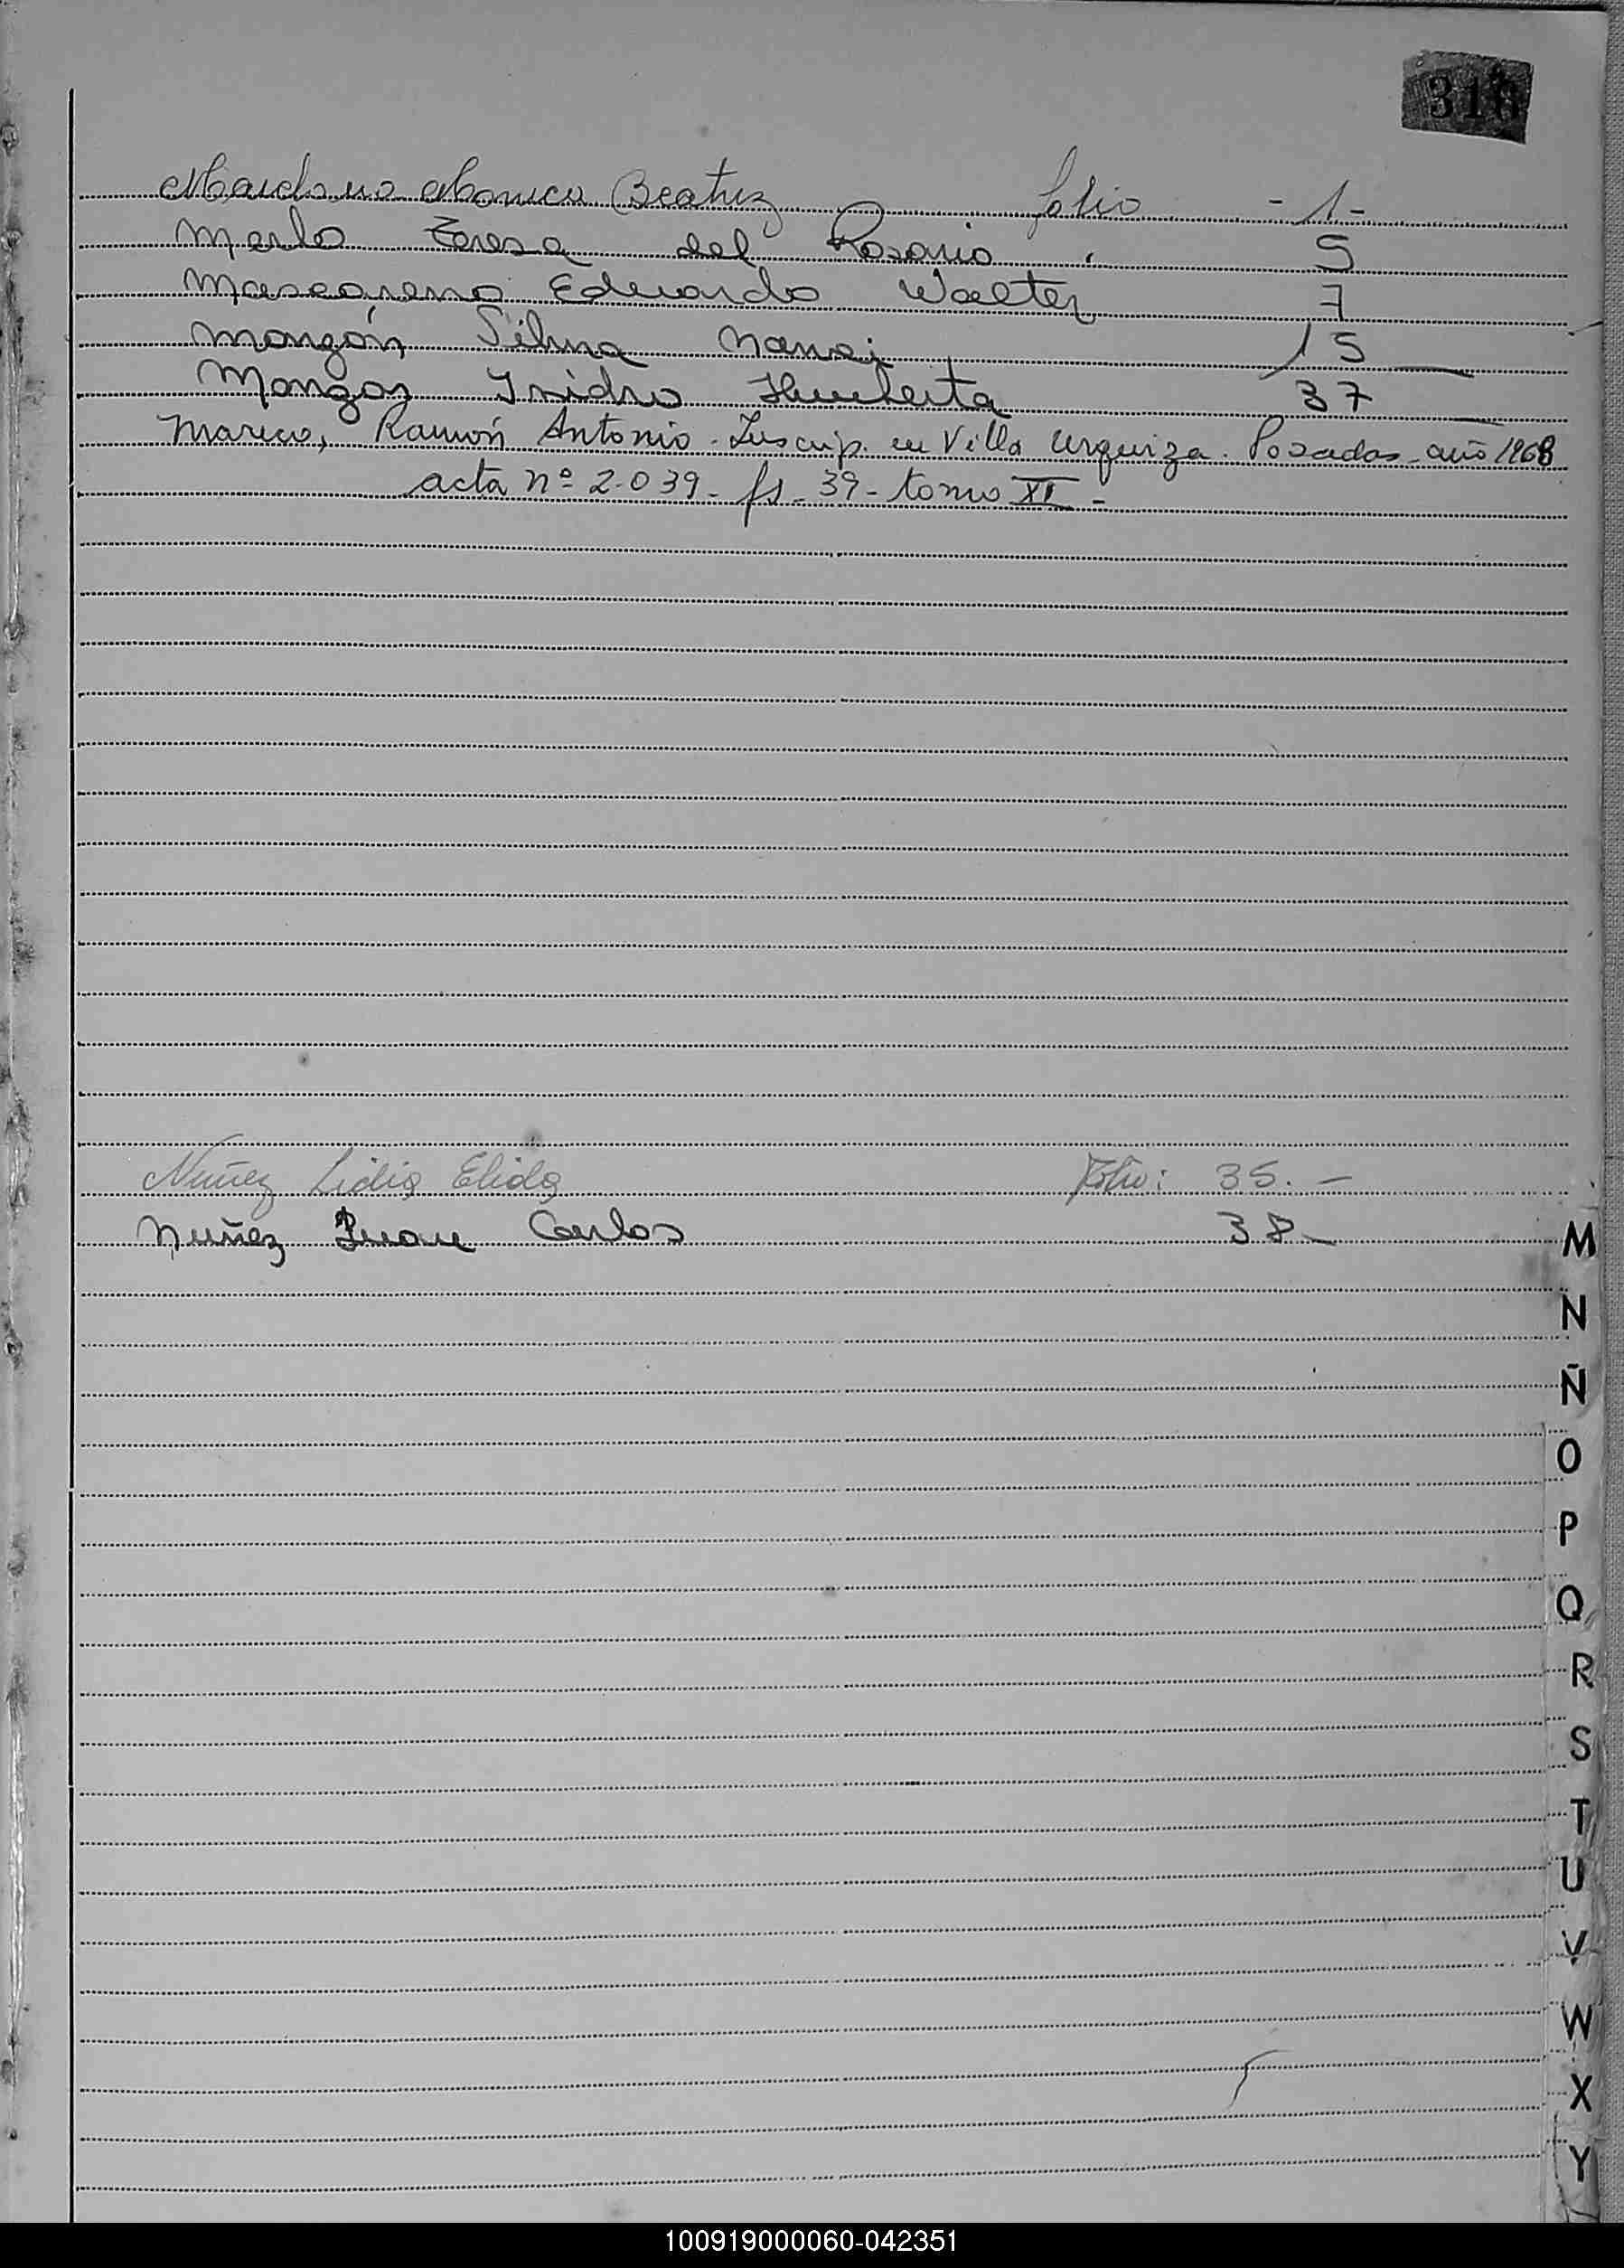 Maidana Monica Beatriz folio - 1 -
Merlo Teresa del Rosario " 5
Mascareno Eduardo Walter 7
Monzón Silvina Nanci 15
Monzon Isidro Humberto 37
Mareco, Ramón Antonio - Inscrip. en Villa Urquiza. Posadas - año 1968
acta nº 2.039 - fs - 39 - tomo XI -
Nuñez Lidia Elida Folio: 35. -
Nuñez Juan Carlos 38 -
M
N
Ñ
O
P
Q
R
S
T
U
V
W
X
Y
100919000060-042351